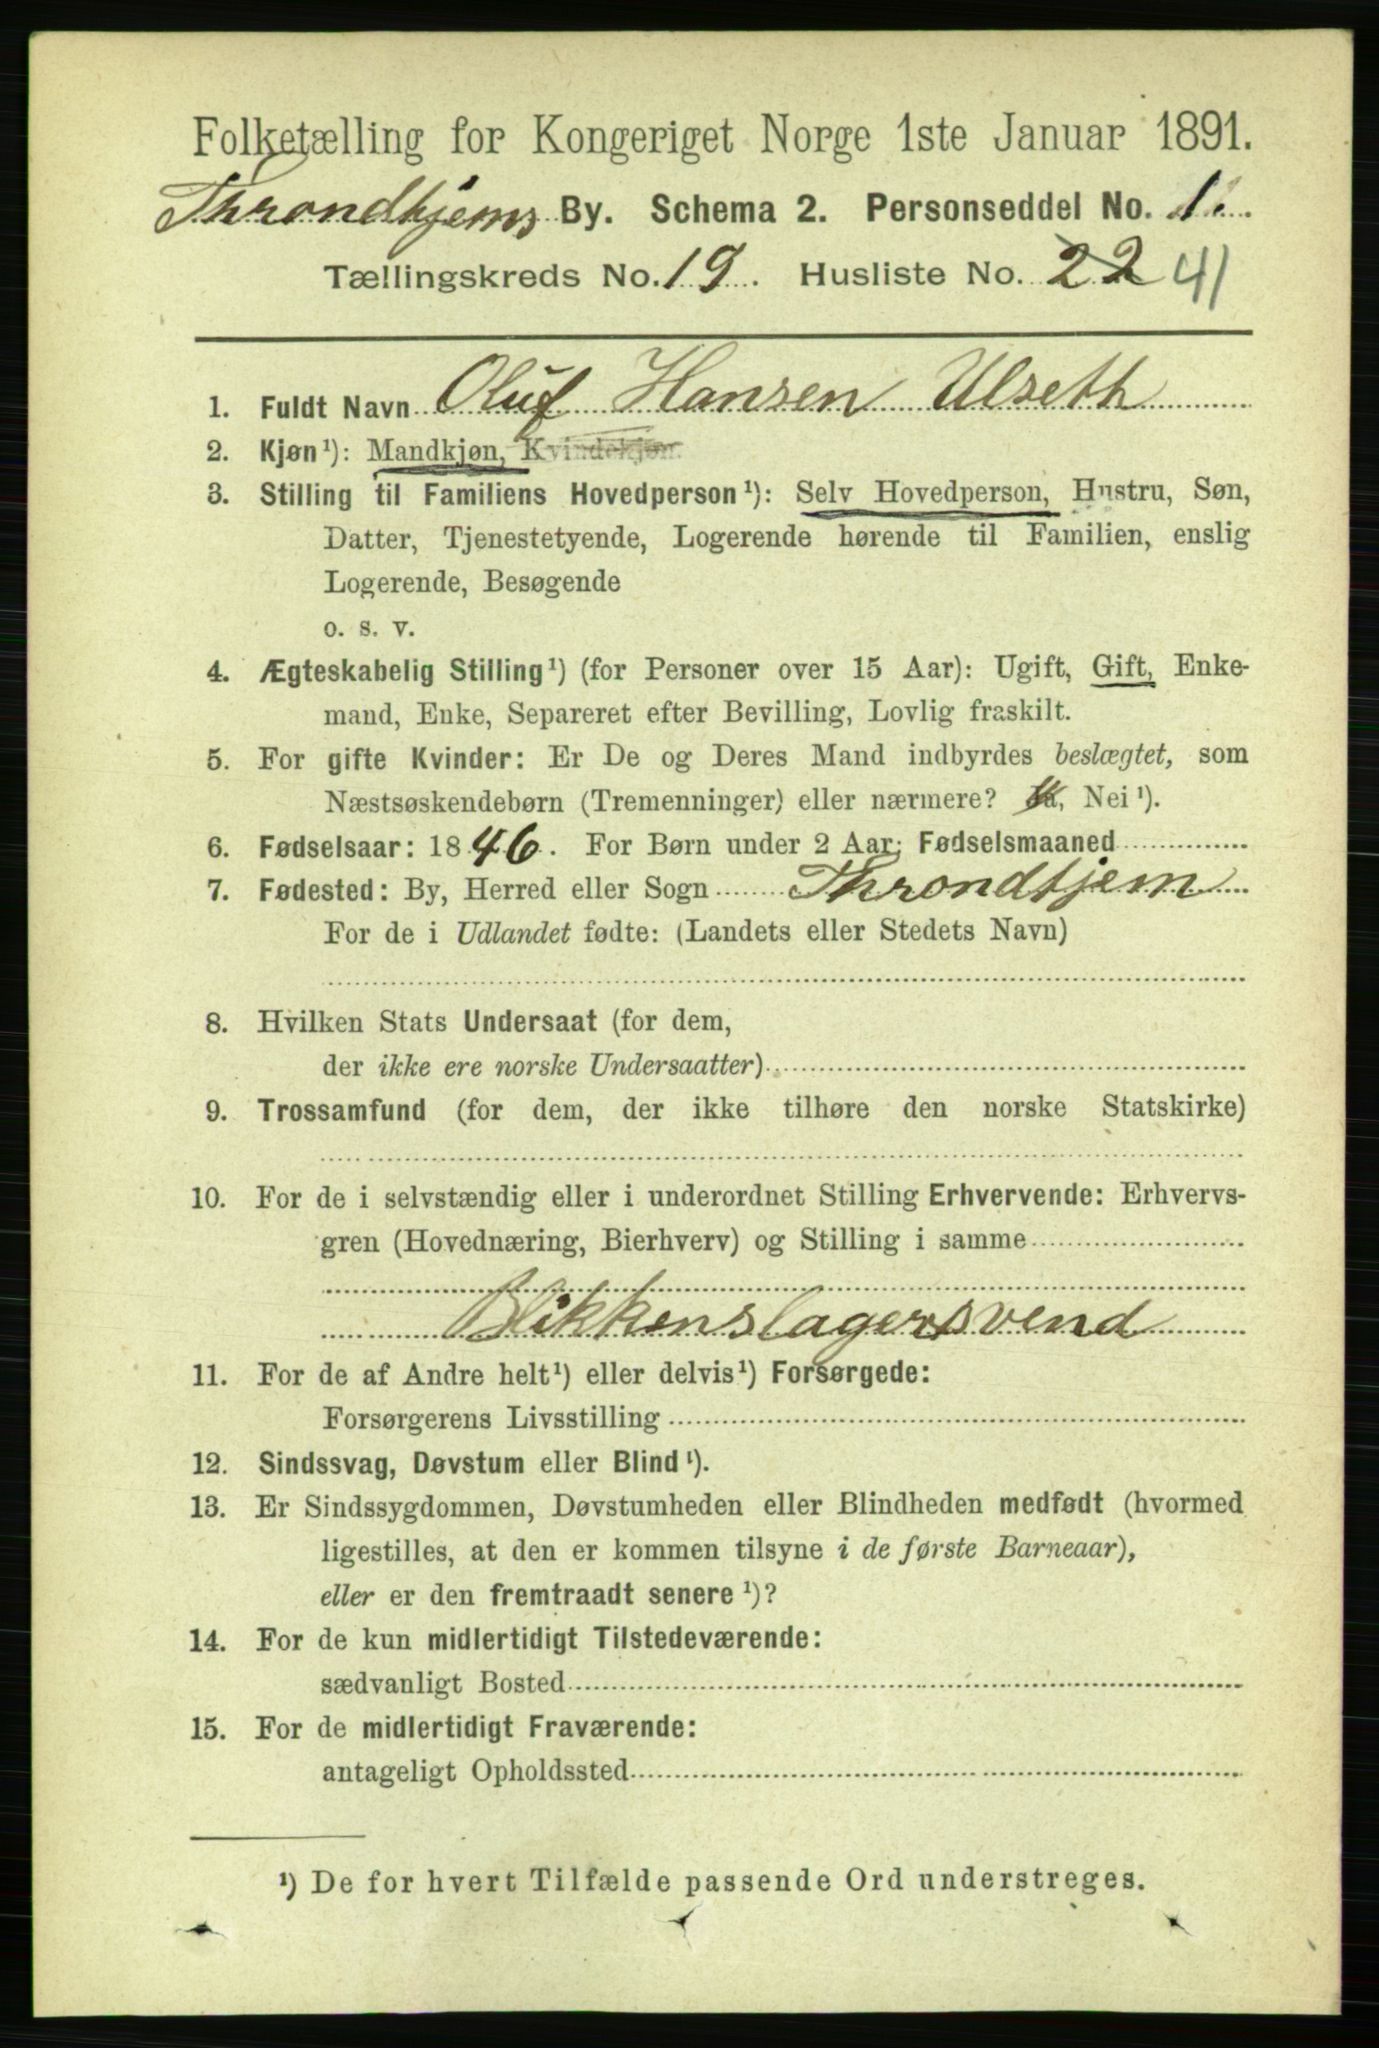 Folketælling for Kongeriget Norge 1ste Januar 1891.
Throndhjems By. Schema 2. Personseddel No. 1.
Tællingskreds No. 19. Husliste No. 22 41
1. Fuldt Navn Oluf Hansen Ulseth
2. Kjøn¹): Mandkjøn, Kvindekjøn.
3. Stilling til Familiens Hovedperson¹): Selv Hovedperson, Hustru, Søn,
Datter, Tjenestetyende, Logerende hørende til Familien, enslig
Logerende, Besøgende
o. s. v.
4. Ægteskabelig Stilling¹) (for Personer over 15 Aar): Ugift, Gift, Enke-
mand, Enke, Separeret efter Bevilling, Lovlig fraskilt.
5. For gifte Kvinder: Er De og Deres Mand indbyrdes beslægtet, som
Næstsøskendebørn (Tremenninger) eller nærmere? Ja, Nei¹).
6. Fødselsaar: 1846. For Børn under 2 Aar: Fødselsmaaned
7. Fødested: By, Herred eller Sogn Throndhjem
For de i Udlandet fødte: (Landets eller Stedets Navn)
8. Hvilken Stats Undersaat (for dem,
der ikke ere norske Undersaatter)
9. Trossamfund (for dem, der ikke tilhøre den norske Statskirke)
10. For de i selvstændig eller i underordnet Stilling Erhvervende: Erhvervs-
gren (Hovednæring, Bierhverv) og Stilling i samme
Blikkenslagersvend
11. For de af Andre helt¹) eller delvis¹) Forsørgede:
Forsørgerens Livsstilling
12. Sindssvag, Døvstum eller Blind¹).
13. Er Sindssygdommen, Døvstumheden eller Blindheden medfødt (hvormed
ligestilles, at den er kommen tilsyne i de første Barneaar),
eller er den fremtraadt senere¹)?
14. For de kun midlertidigt Tilstedeværende:
sædvanligt Bosted
15. For de midlertidigt Fraværende:
antageligt Opholdssted
¹) De for hvert Tilfælde passende Ord understreges.